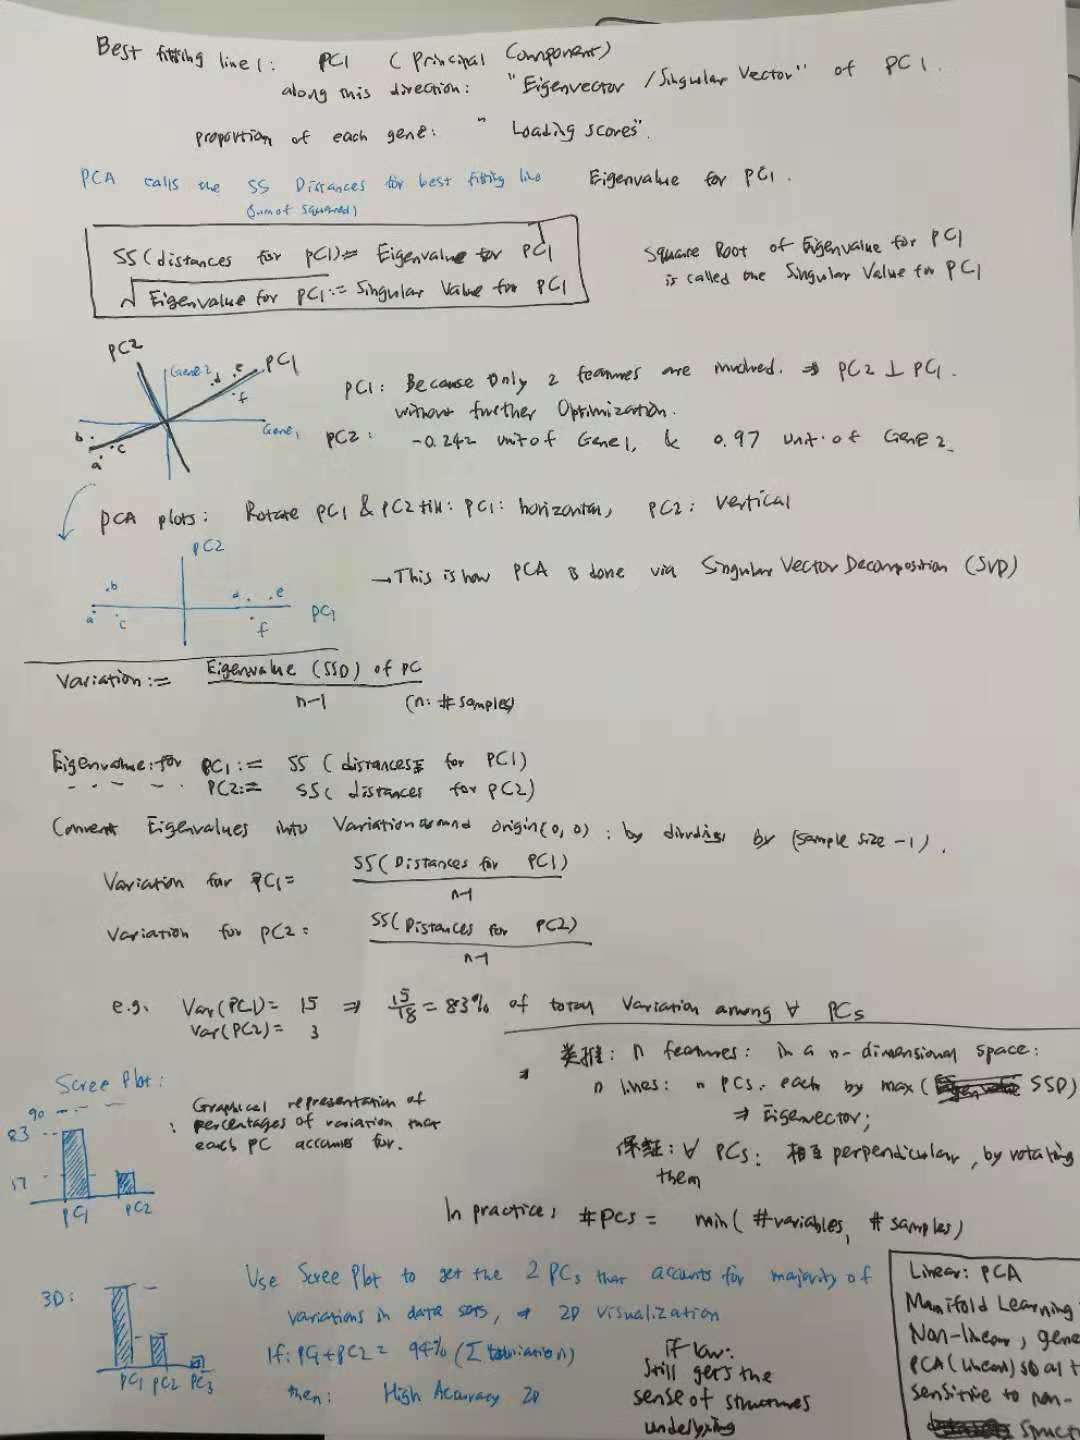 Best fitting line 1: PC1 (Principal Component)
along this direction: "Eigenvector / Singular Vector" of PC1.
proportion of each gene: "Loading scores".
PCA calls the SS Distances for best fitting line Eigenvalue for PC1.
(sum of squared)
SS(distances for PC1) = Eigenvalue for PC1
√Eigenvalue for PC1 := Singular Value for PC1
Square Root of Eigenvalue for PC1
is called the Singular Value for PC1
PC2
Gene 2
d
e
PC1
f
b
c
a
Gene 1
PC1: Because Only 2 features are involved. ⇒ PC2 ⊥ PC1.
without further Optimization.
PC2: -0.242 unit of Gene 1, & 0.97 unit of Gene 2
PCA plots: Rotate PC1 & PC2 till: PC1: horizontal, PC2: Vertical
PC2
b
a
c
d
e
f
PC1
→ This is how PCA is done via Singular Vector Decomposition (SVD)
Variation := Eigenvalue (SSD) of PC
n-1
(n: # samples)
Eigenvalue: for PC1 := SS (distances for PC1)
PC2 := SS( distances for PC2)
Convert Eigenvalues into Variation around origin(0,0) : by dividing by (sample size -1).
Variation for PC1 = SS(Distances for PC1)
n-1
Variation for PC2 = SS(Distances for PC2)
n-1
e.g. Var(PC1) = 15 ⇒ 15/18 = 83% of total Variation among ∀ PCs
Var(PC2) = 3
类推: n features: in a n-dimensional space:
n lines: n PCs. each by max( SSD)
⇒ Eigenvector;
保证: ∀ PCs: 相互 perpendicular, by rotating
them
Scree Plot:
90
83
17
PC1
PC2
: Graphical representation of
percentages of variation that
each PC accounts for.
In practice: #PCs = min( #variables, # samples)
3D:
PC1 PC2 PC3
Use Scree Plot to get the 2 PCs that accounts for majority of
variations in data sets, ⇒ 2D visualization
If: PC1+PC2 = 94% (Σ variation)
then: High Accuracy 2D
If low:
Still gets the
sense of structures
underlying
Linear: PCA
Manifold Learning
Non-linear, gene
PCA (linear) so al
sensitive to non-